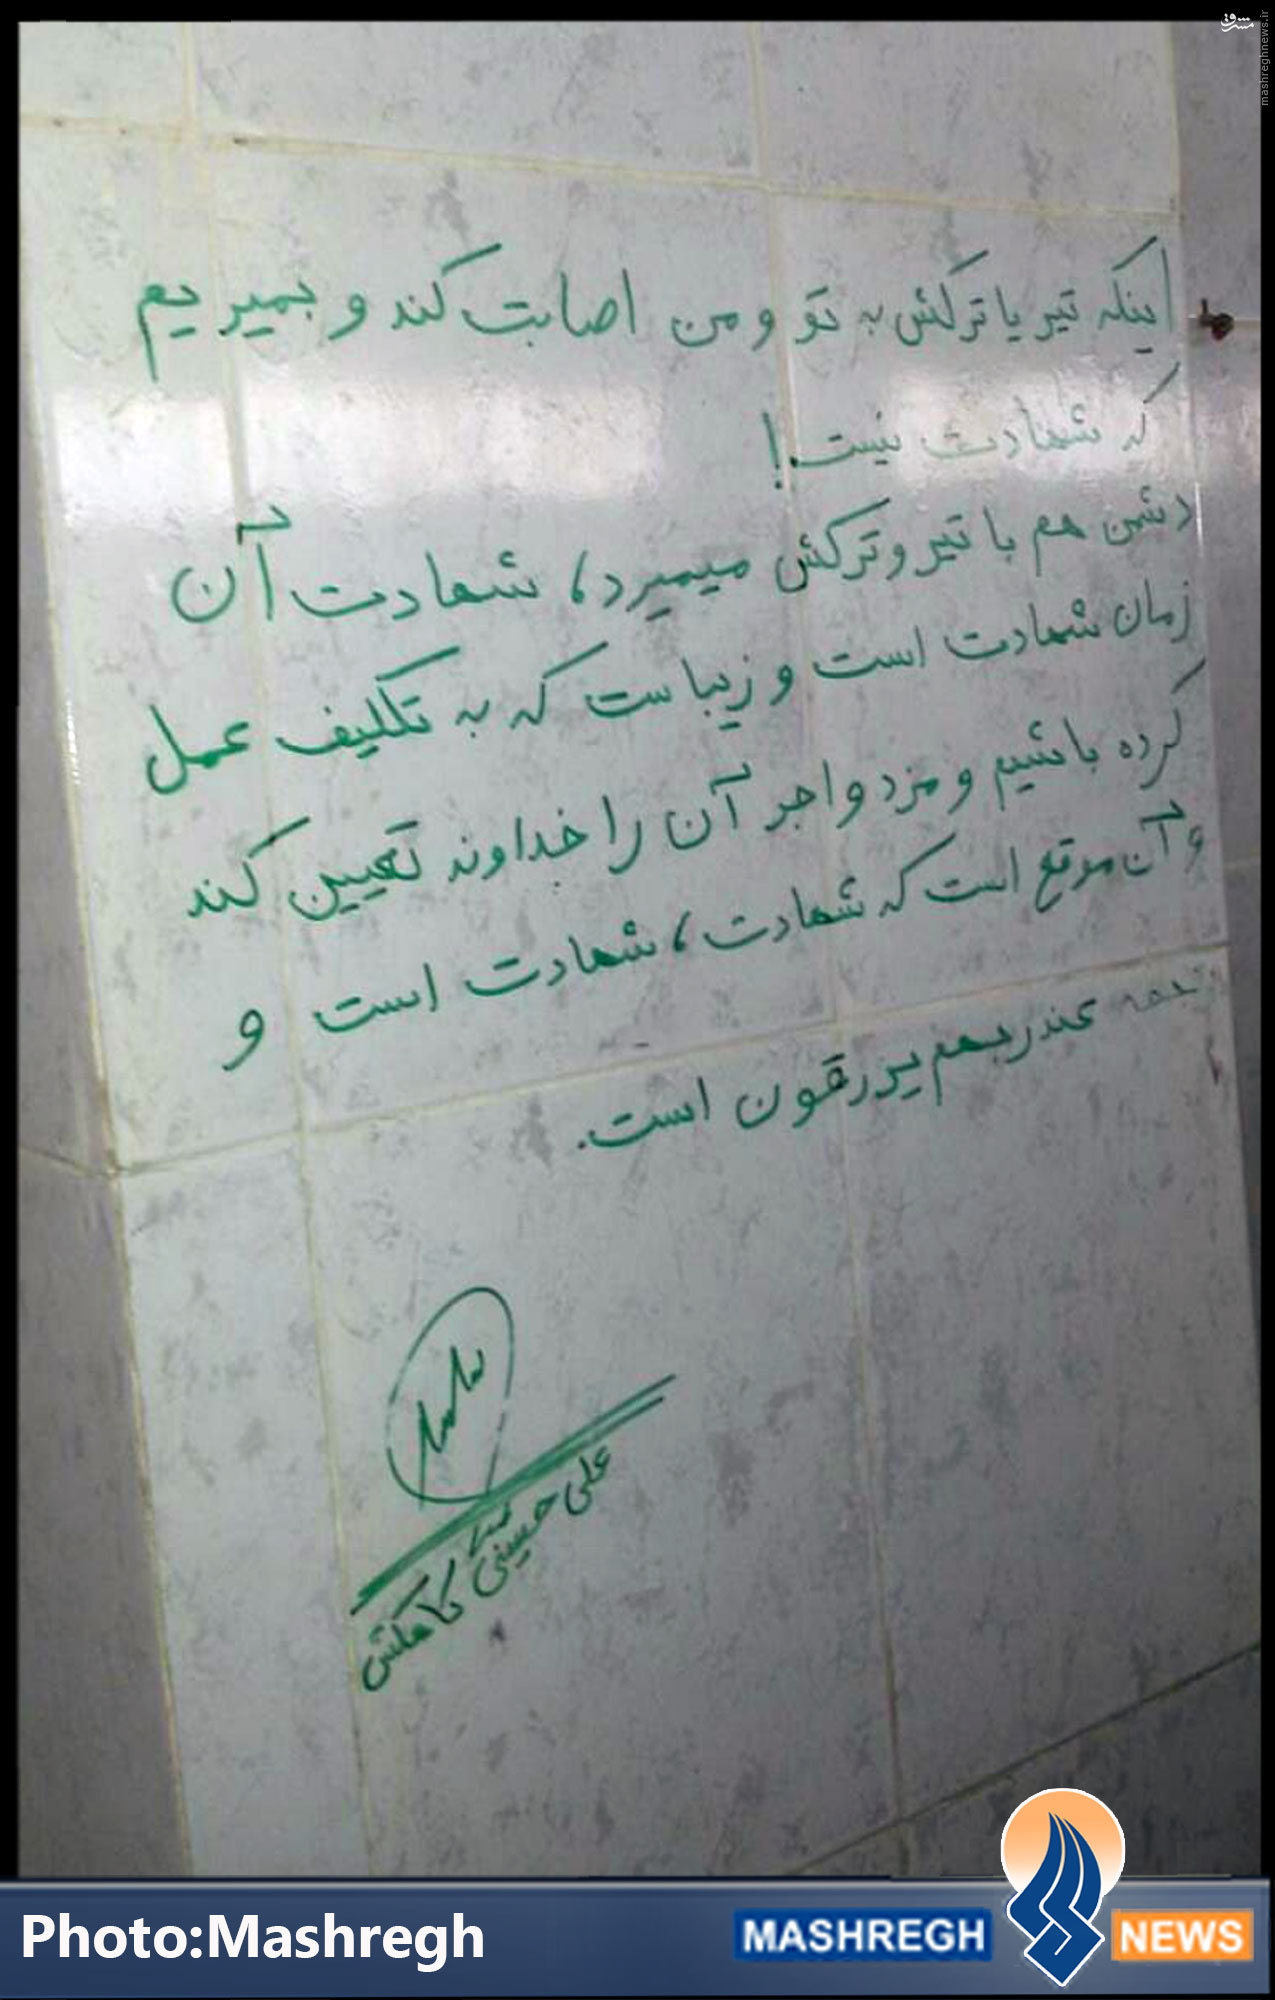 مشرق
mashreghnews.ir
اینکه تیر یا ترکش به تو و من اصابت کند و بمیریم
که شهادت نیست!
دشمن هم با تیر و ترکش میمیرد، شهادت آن
زمان شهادت است و زیباست که به تکلیف عمل
کرده باشیم و مزد و اجر آن را خداوند تعیین کند
و آن موقع است که شهادت، شهادت است و
عندربهم یرزقون است.
علی حسینی کاهکش
Photo:Mashregh
MASHREGH NEWS